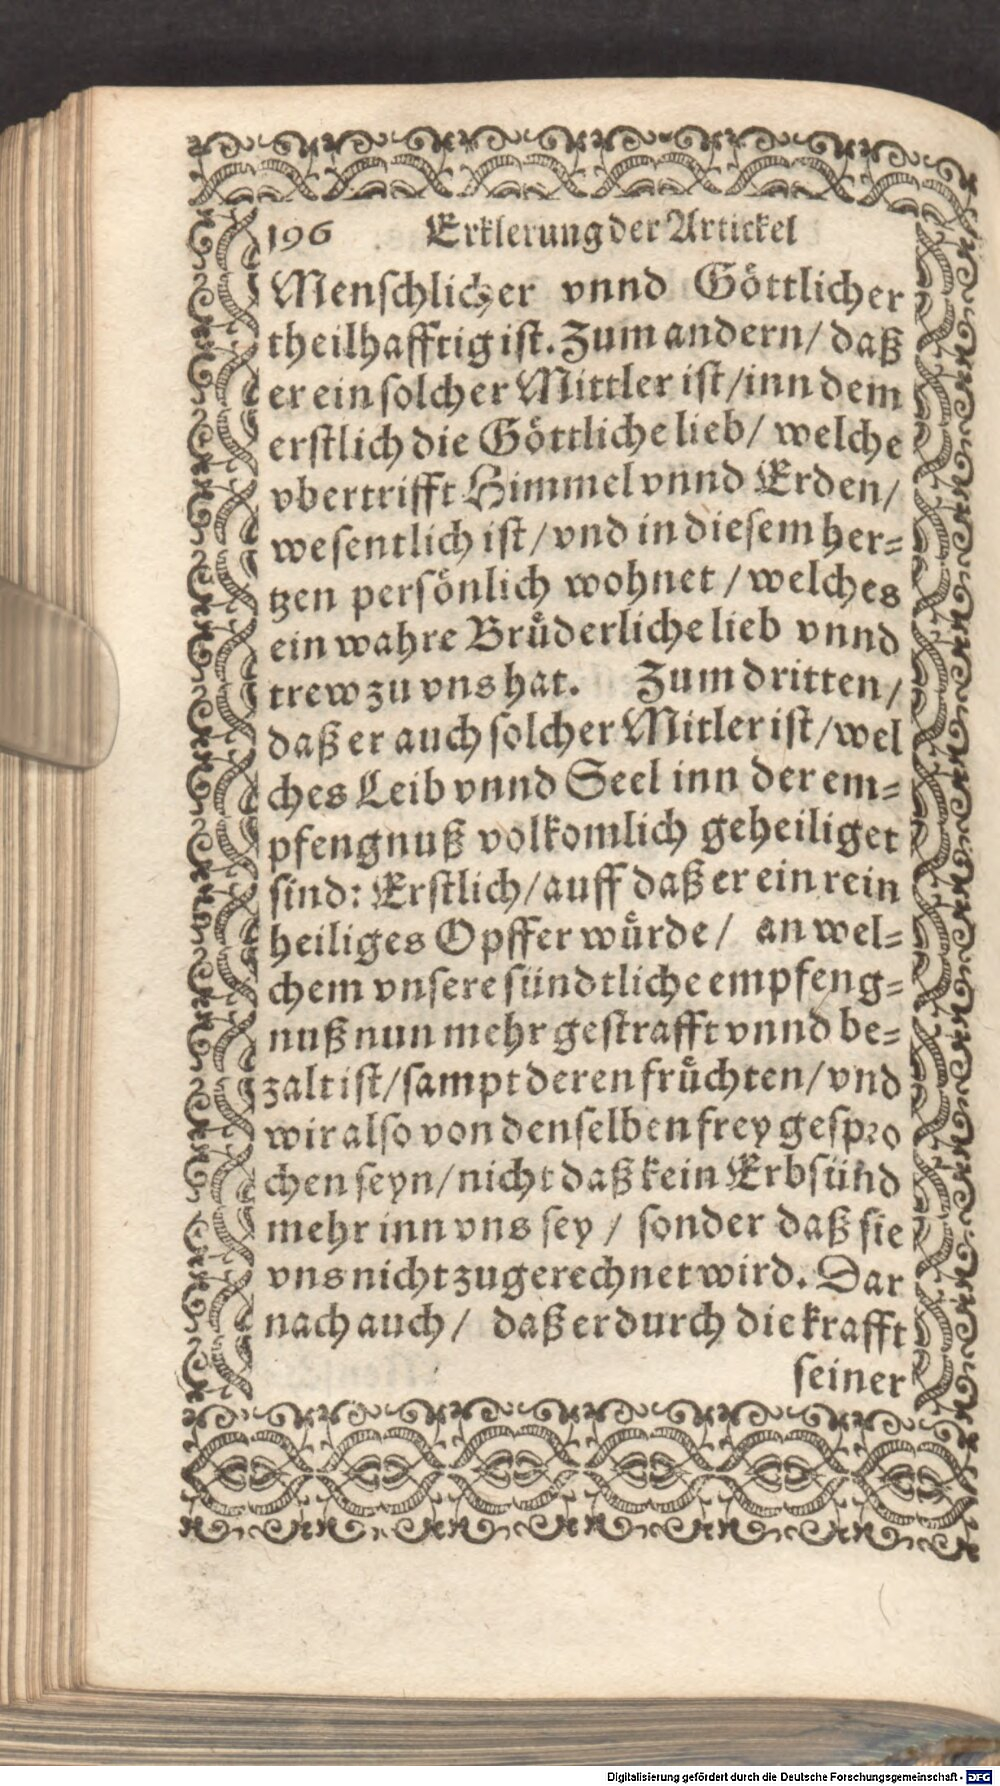 196 Erklerung der Artickel
Menschlicher vnnd Göttlicher
theilhafftig ist. Zum andern/ daß
er ein solcher Mittler ist/ inn dem
erstlich die Göttliche lieb/ welche
vbertrifft Himmel vnnd Erden/
wesentlich ist/ vnd in diesem her=
tzen persönlich wohnet/ welches
ein wahre Brüderliche lieb vnnd
trew zu vns hat. Zum dritten/
daß er auch solcher Mitler ist/ wel
ches Leib vnnd Seel inn der em=
pfengnuß volkomlich geheiliget
sind: Erstlich/ auff daß er ein rein
heiliges Opffer würde/ an wel=
chem vnsere sündtliche empfeng=
nuß nun mehr gestrafft vnnd be=
zalt ist/ sampt deren früchten/ vnd
wir also von denselben frey gespro
chen seyn/ nicht daß kein Erbsünd
mehr inn vns sey/ sonder daß sie
vns nicht zugerechnet wird. Dar
nach auch/ daß er durch die krafft
seiner
Digitalisierung gefördert durch die Deutsche Forschungsgemeinschaft - DFG